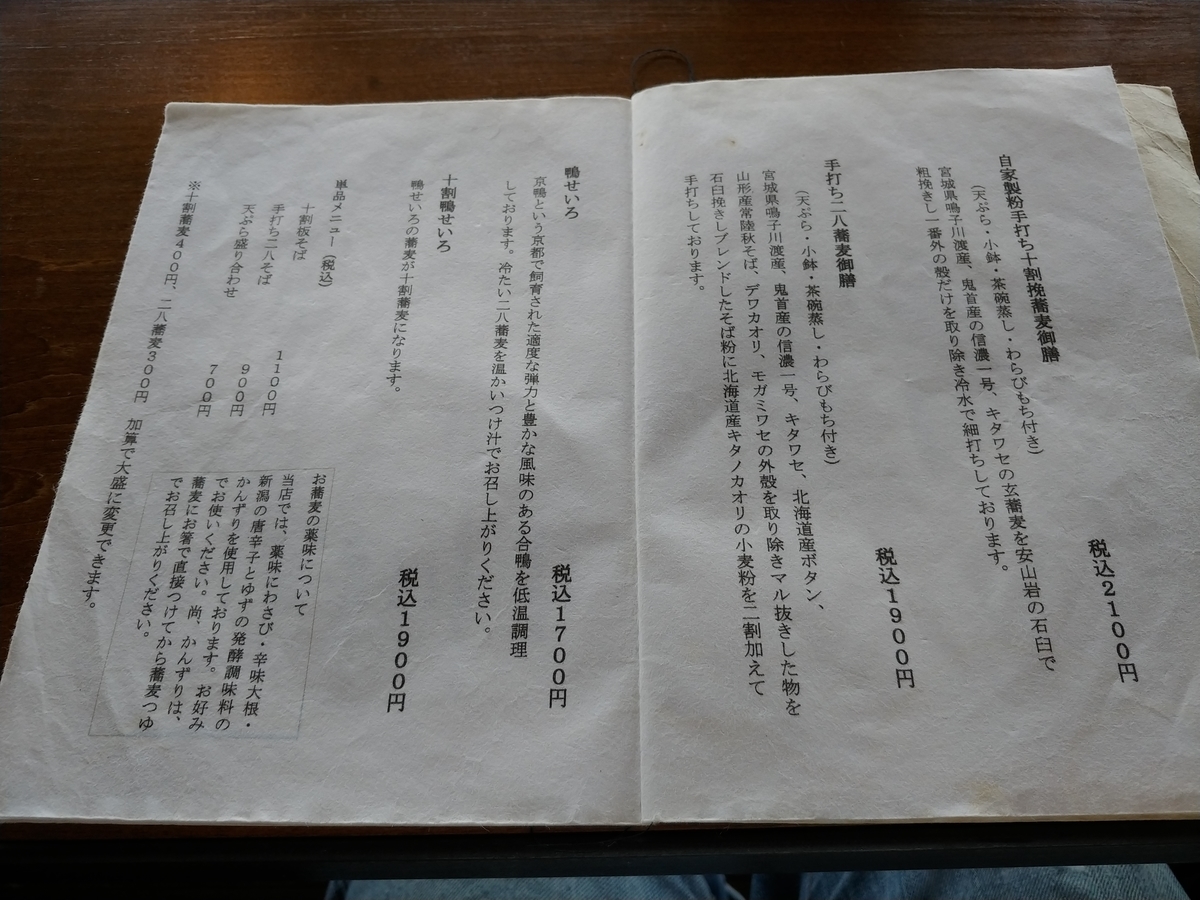 自家製粉手打ち十割挽蕎麦御膳
税込2100円
(天ぷら・小鉢・茶碗蒸し・わらびもち付き)
宮城県鳴子川渡産、鬼首産の信濃一号、キタワセの玄蕎麦を安山岩の石臼で
粗挽きし一番外の殻だけを取り除き冷水で細打ちしております。
手打ち二八蕎麦御膳
税込1900円
(天ぷら・小鉢・茶碗蒸し・わらびもち付き)
宮城県鳴子川渡産、鬼首産の信濃一号、キタワセ、北海道産ボタン、
山形産常陸秋そば、デワカオリ、モガミワセの外殻を取り除きマル抜きした物を
石臼挽きしブレンドしたそば粉に北海道産キタノカオリの小麦粉を二割加えて
手打ちしております。
鴨せいろ
税込1700円
京鴨という京都で飼育された適度な弾力と豊かな風味のある合鴨を低温調理
しております。冷たい二八蕎麦を温かいつけ汁でお召し上がりください。
十割鴨せいろ
税込1900円
鴨せいろの蕎麦が十割蕎麦になります。
単品メニュー(税込)
十割板そば 1100円
手打ち二八そば 900円
天ぷら盛り合わせ 700円
※十割蕎麦400円、二八蕎麦300円 加算で大盛に変更できます。
お蕎麦の薬味について
当店では、薬味にわさび・辛味大根・
新潟の唐辛子とゆずの発酵調味料の
かんずりを使用しております。お好み
でお使いください。尚、かんずりは、
蕎麦にお箸で直接つけてから蕎麦つゆ
でお召し上がりください。